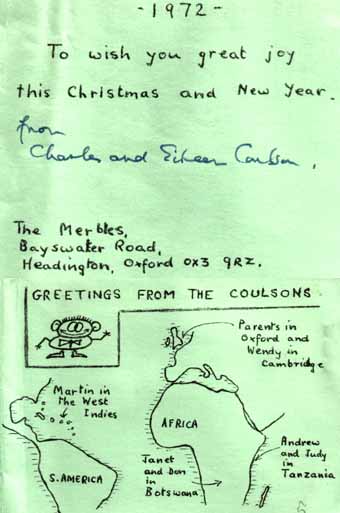 -1972-
To wish you great joy
this Christmas and New Year.
from
Charles and Eileen Coulson.
The Merbles,
Bayswater Road,
Headington, Oxford OX3 9RZ.
GREETINGS FROM THE COULSONS
Parents in
Oxford and
Wendy in
Cambridge
Martin in
The West
Indies
AFRICA
S. AMERICA
Janet
and Don
in
Botswana
Andrew
and Judy
in
Tanzania